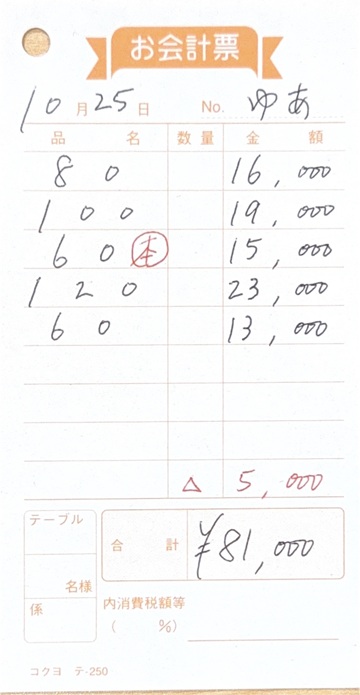 お会計票
10月25日 No. ゆあ
品名 数量 金額
80 16,000
100 19,000
60 本 15,000
120 23,000
60 13,000
△ 5,000
テーブル
名様
係
合計 ¥81,000
内消費税額等
( %)
コクヨ テ-250